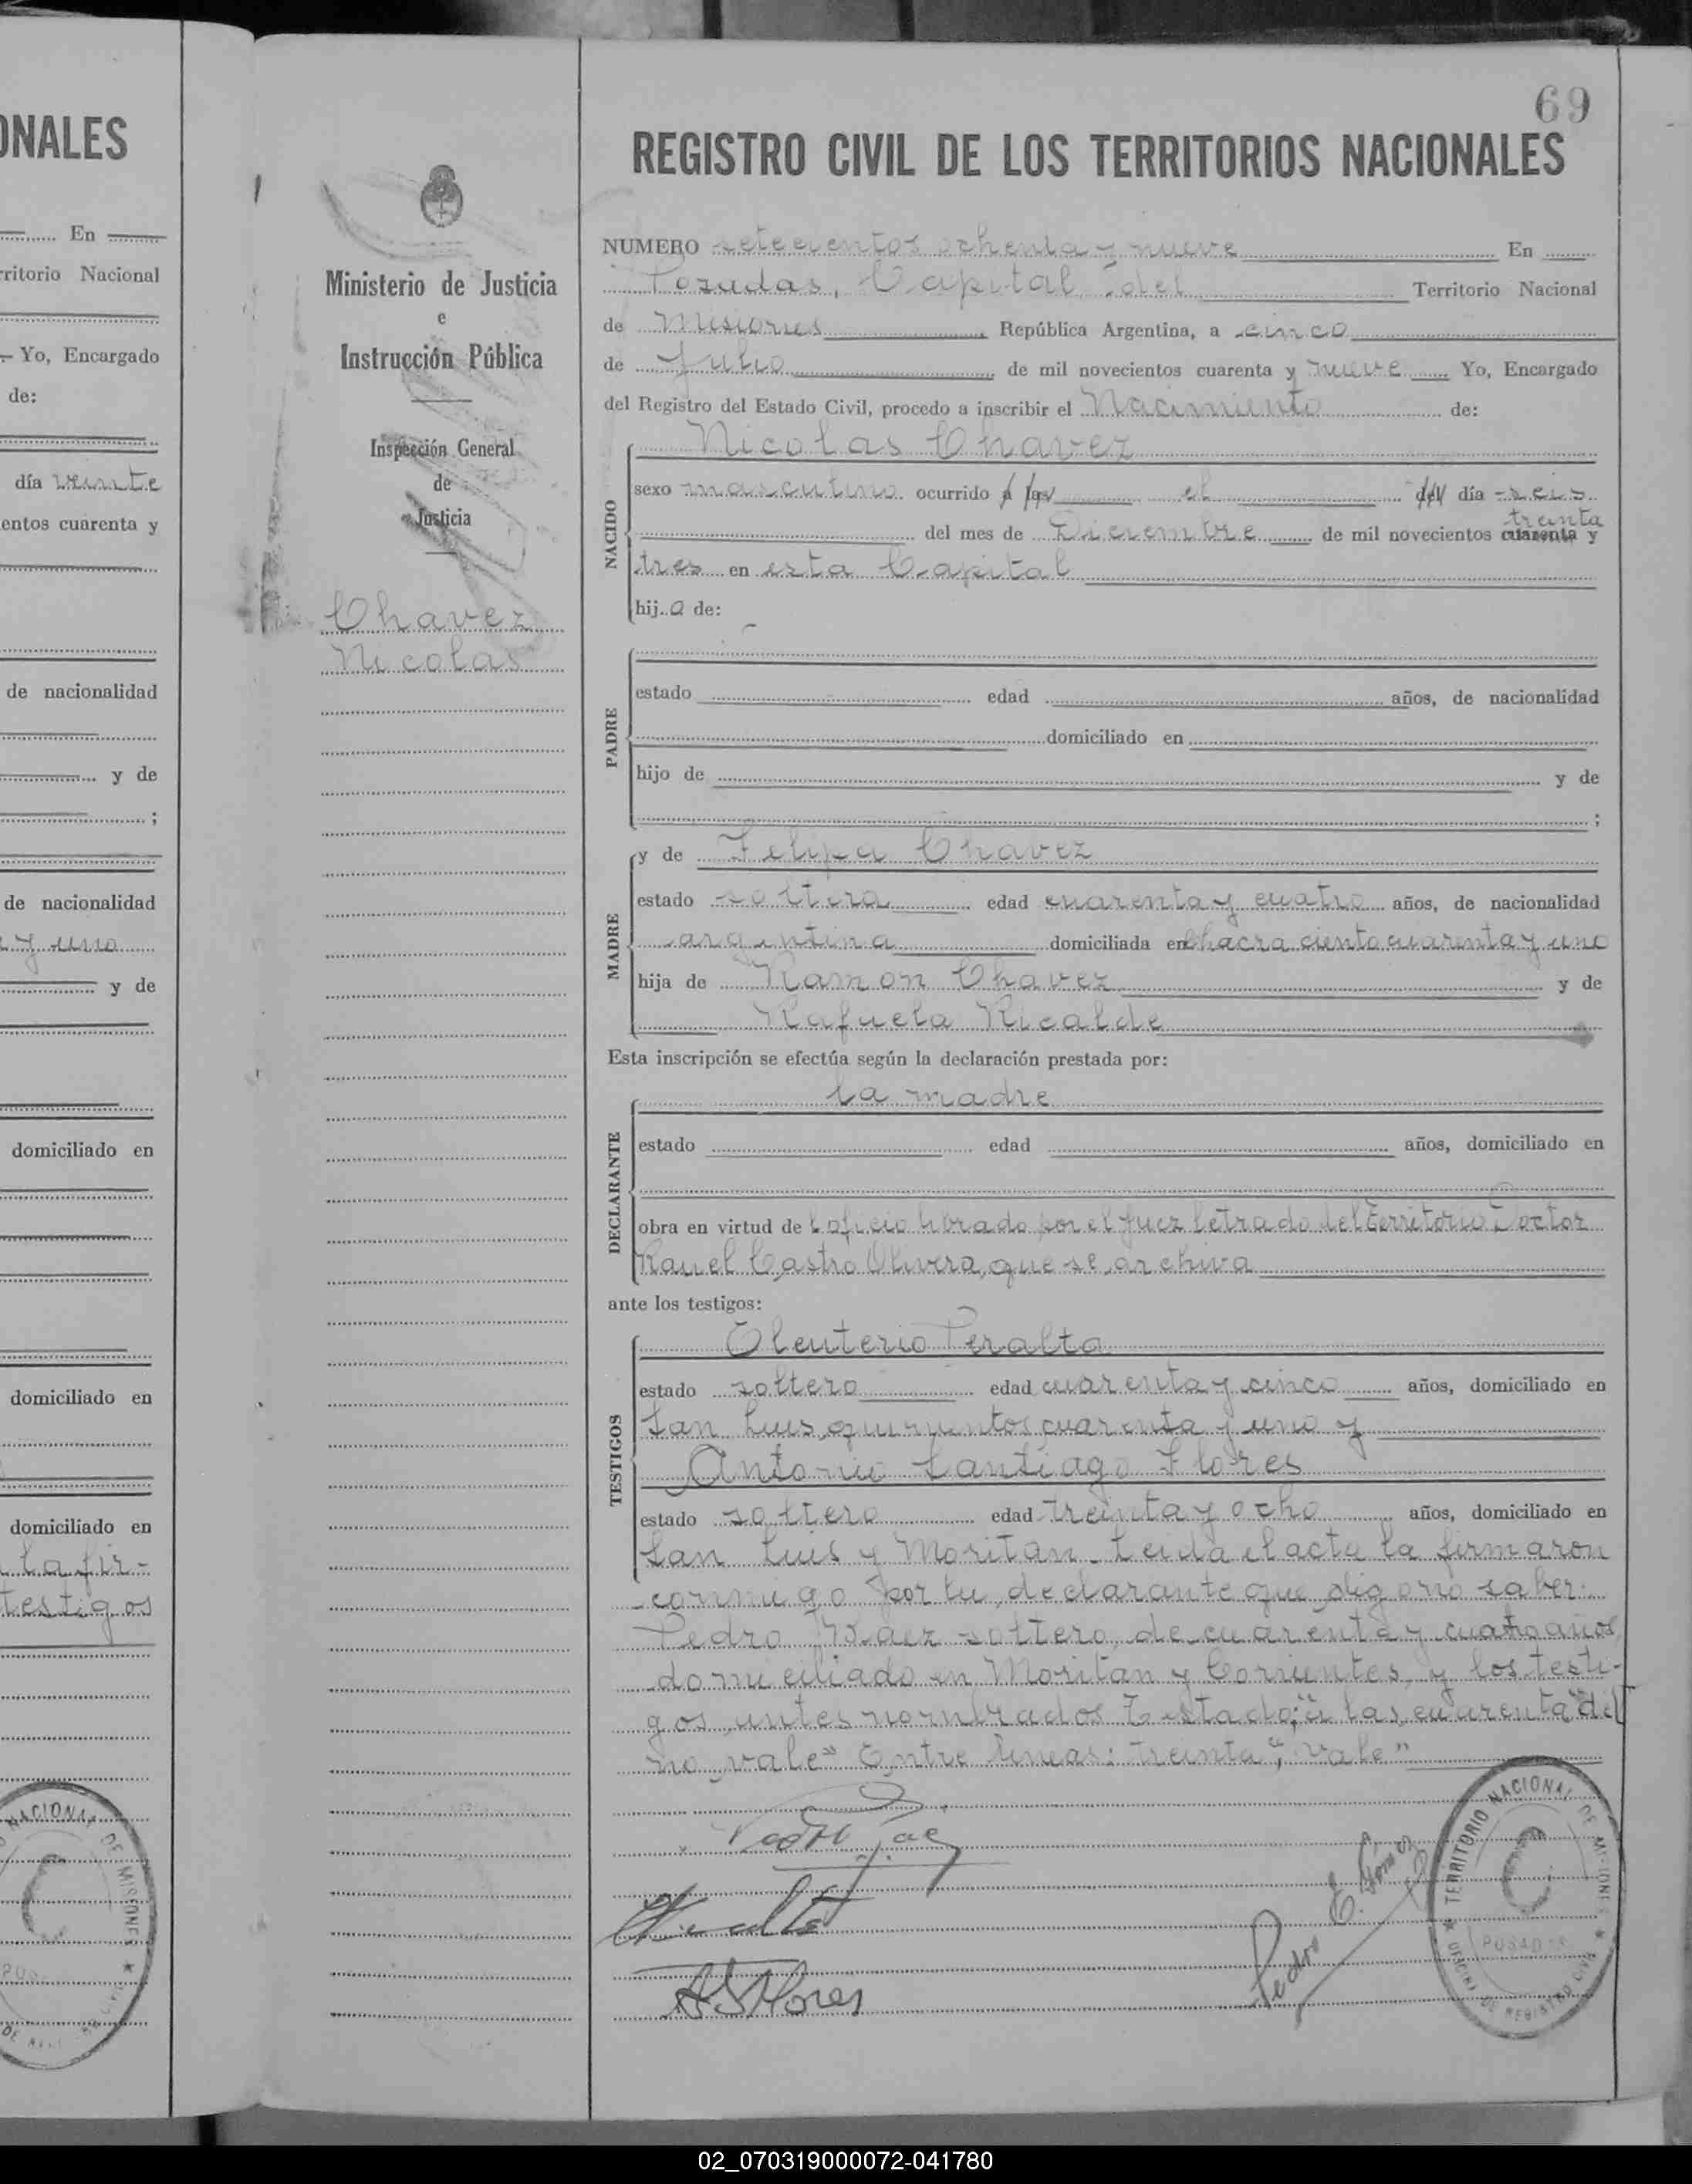 ONALES
En
rritorio Nacional
Yo, Encargado
de:
día veinte
entos cuarenta y
de nacionalidad
y de
;
de nacionalidad
y uno
y de
domiciliado en
domiciliado en
domiciliado en
la fir-
testigos
NACIONAL DE MISIONES
Ministerio de Justicia
e
Instrucción Pública
Inspección General
de
Justicia
Chavez
Nicolas
69
REGISTRO CIVIL DE LOS TERRITORIOS NACIONALES
NUMERO setecientos ochenta y nueve En
Posadas, Capital del Territorio Nacional
de Misiones República Argentina, a cinco
de Julio de mil novecientos cuarenta y nueve Yo, Encargado
del Registro del Estado Civil, procedo a inscribir el Nacimiento de:
NACIDO
Nicolas Chavez
sexo masculino ocurrido a las el del día seis
treinta
del mes de Diciembre de mil novecientos cuarenta y
tres en esta Capital
hij o de:
PADRE
estado edad años, de nacionalidad
domiciliado en
hijo de y de
;
MADRE
y de Felipa Chavez
estado soltera edad cuarenta y cuatro años, de nacionalidad
argentina domiciliada en Chacra ciento cuarenta y uno
hija de Ramon Chavez y de
Rafuela Ricalde
Esta inscripción se efectúa según la declaración prestada por:
DECLARANTE
la madre
estado edad años, domiciliado en
obra en virtud de l oficio librado por el Juez letrado del Territorio Doctor
Castro Olivera, que se archiva
ante los testigos:
TESTIGOS
Eleuterio Peralta
estado soltero edad cuarenta y cinco años, domiciliado en
San Luis quinientos cuarenta y uno y
Antonio Santiago Flores
estado soltero edad treinta y ocho años, domiciliado en
San Luis y Moritan. Leida el acta la firmaron
conmigo por la declarante que dijo no saber:
Pedro Baez soltero, de cuarenta y cuatro años
domiciliado en Moritan y Corrientes, y los testi-
gos antes nombrados Testado: "a las cuarenta" del
no vale" Entre lineas: treinta", vale"
A S Flores
Pedro E.
TERRITORIO NACIONAL DE MISIONES
POSADAS
OFICINA DE REGISTRO CIVIL
02_070319000072-041780